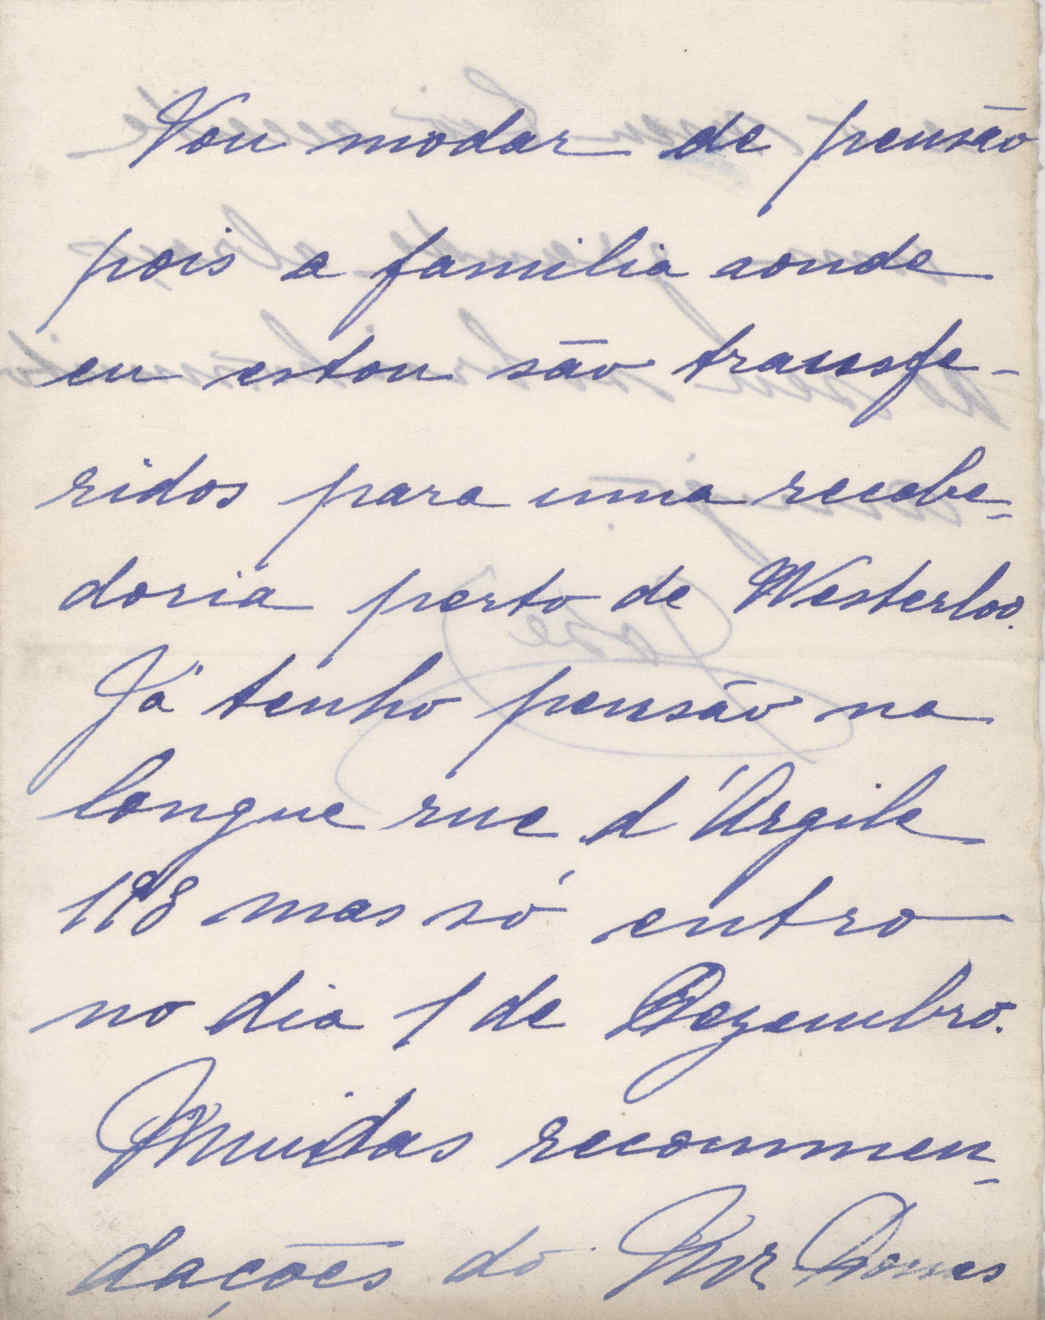 Vou modar de pensão
pois a familia aonde
eu estou são transfe-
ridos para uma recebe-
doria perto de Westerloo.
Já tenho pensão na
longue rue d'Argile
198 mas só entro
no dia 1 de Dezembro.
Muidas recommen-
dações do Mr